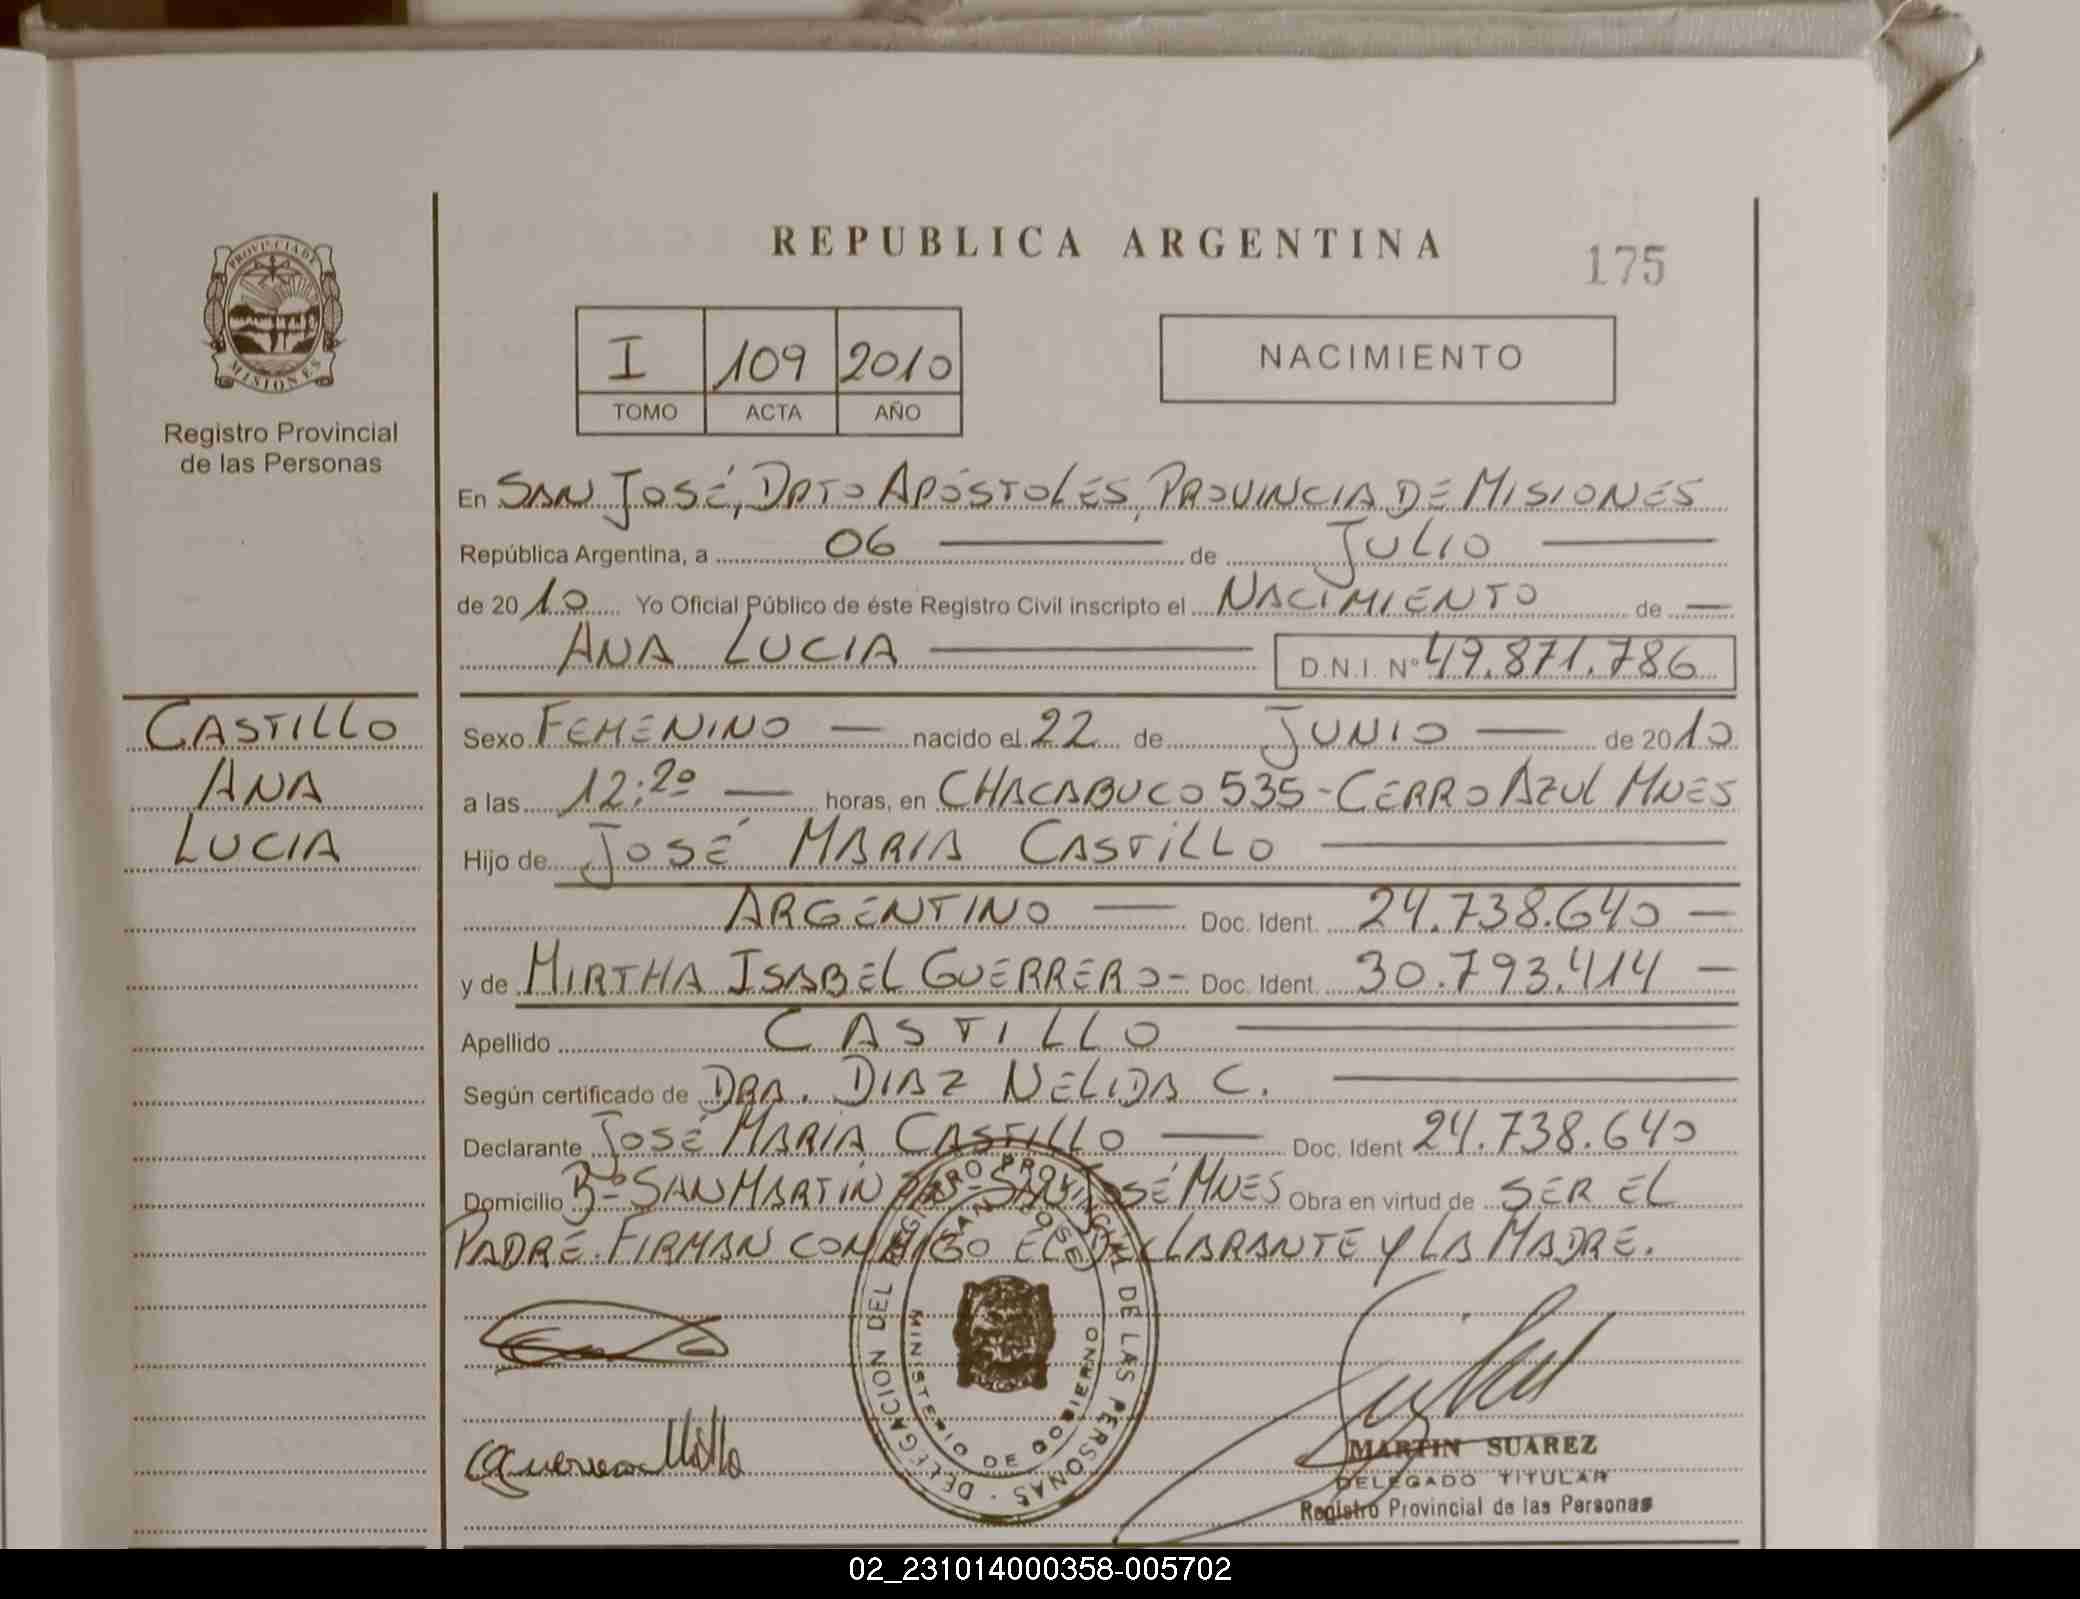 REPUBLICA ARGENTINA
175
PROVINCIA DE
MISIONES
Registro Provincial
de las Personas
I 109 2010
TOMO ACTA AÑO
NACIMIENTO
En SAN JOSÉ, DPTO APÓSTOLES, PROVINCIA DE MISIONES
República Argentina, a 06 de JULIO
de 2010 Yo Oficial Público de éste Registro Civil inscripto el NACIMIENTO de
ANA LUCIA D.N.I. Nº 49.871.786
CASTILLO
ANA
LUCIA
Sexo FEMENINO nacido el 22 de JUNIO de 2010
a las 12:20 horas, en CHACABUCO 535-CERRO AZUL MNES
Hijo de JOSÉ MARIA CASTILLO
ARGENTINO Doc. Ident. 24.738.640
y de MIRTHA ISABEL GUERRERO- Doc. Ident. 30.793.414
Apellido CASTILLO
Según certificado de DRA. DIAZ NELIDA C.
Declarante JOSÉ MARIA CASTILLO Doc. Ident 24.738.640
Domicilio Bº SAN MARTIN SAN JOSÉ MNES Obra en virtud de SER EL
PADRE. FIRMAN CONMIGO EL DECLARANTE Y LA MADRE.
DELEGACION DEL REGISTRO PROVINCIAL DE LAS PERSONAS -
SAN JOSE
MINISTERIO DE GOBIERNO
MARTIN SUAREZ
DELEGADO TITULAR
Registro Provincial de las Personas
02_231014000358-005702